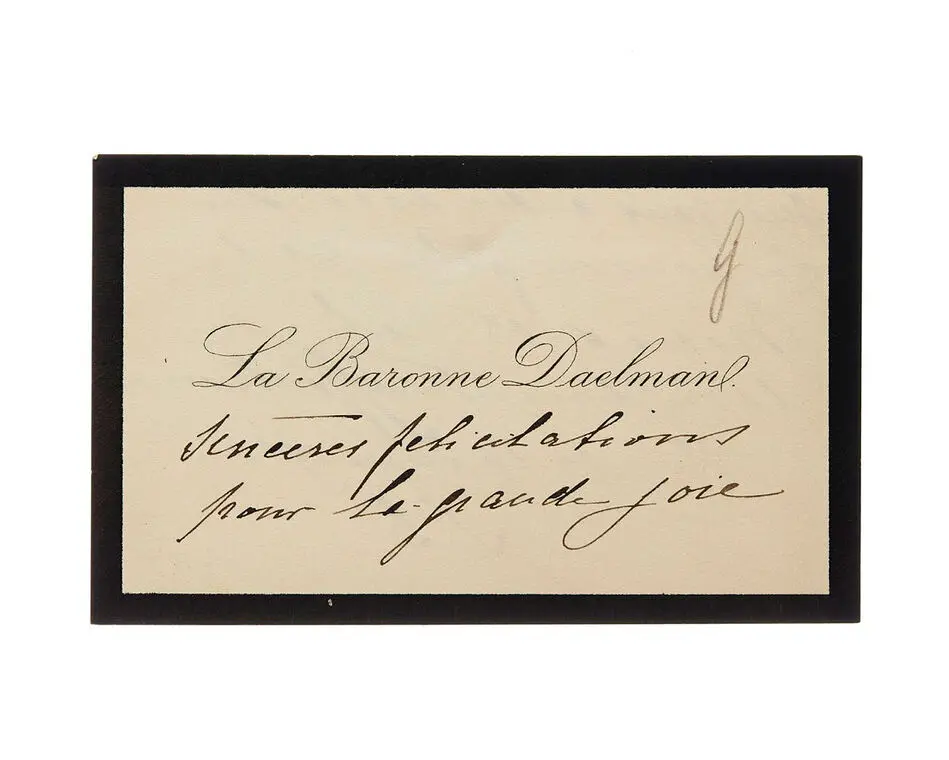 y
La Baronne Daelman.
sincères félicitations
pour la grande joie